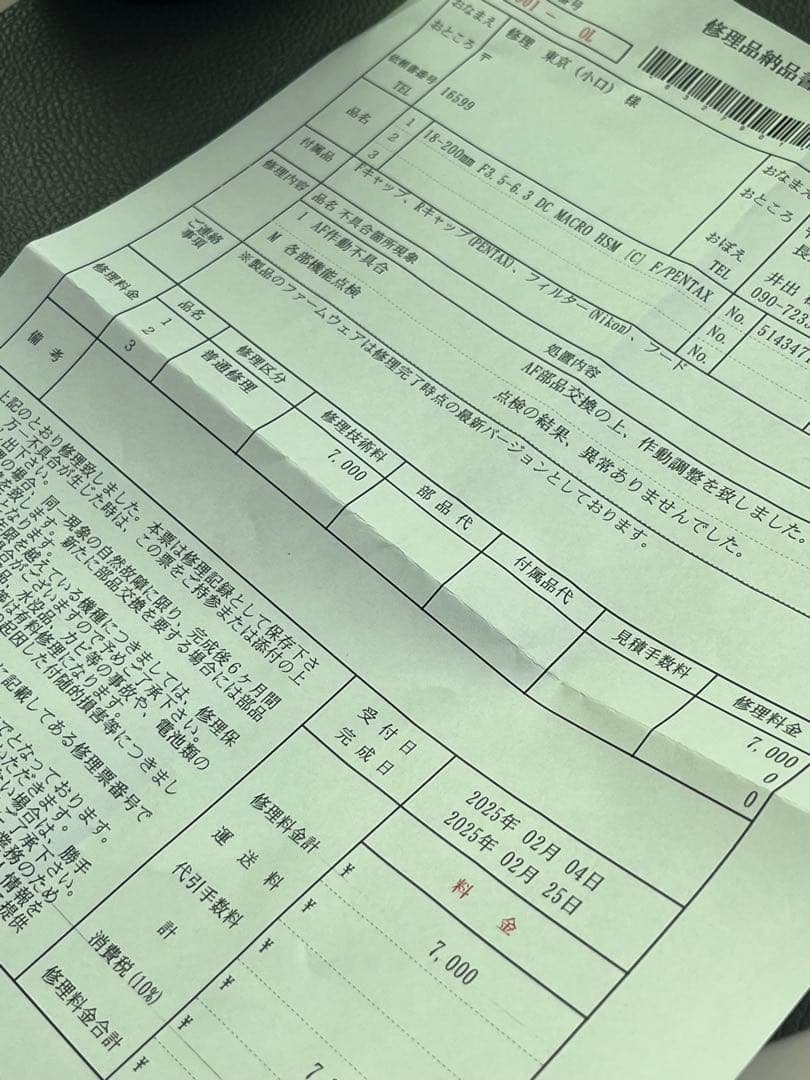 修理品納品書
01 - 0L
おなまえ
おところ 〒
修理 東京 (小口) 様
依頼書番号 16599
TEL
おなまえ
おところ
おぼえ
TEL
井出
090-723
品名
1 18-200mm F3.5-6.3 DC MACRO HSM [C] F/PENTAX
2
3
No. 514347
No.
No.
付属品 Fキャップ、Rキャップ(PENTAX)、フィルター(Nikon)、フード
修理内容
品名 不具合箇所現象 処置内容
1 AF作動不具合 AF部品交換の上、作動調整を致しました。
M 各部機能点検 点検の結果、異常ありませんでした。
ご連絡事項
※製品のファームウェアは修理完了時点の最新バージョンとしております。
修理料金
品名 修理区分 修理技術料 部品代 付属品代 見積手数料 修理料金
1 普通修理 7,000 7,000
2 0
3 0
備考
上記のとおり修理致しました。本票は修理記録として保存下さ
万一不具合が生じた時は、この票をご持参または添付の上
出下さい。
同一現象の自然故障に限り、完成後6ケ月間
新たに部品交換を要する場合には部品
年限を越えている機種につきましては、修理保
合がございますので予めご了承下さい。
品、水没品、カビ等の事故や、電池類の
は有料修理になります。
起因した付随的損害等につきまし
に記載してある修理票番号で
となっております。
いただきます。
ない場合は、勝手
ご了承下さい。
業務のため
情報を
提供
受付日 2025年 02月 04日
完成日 2025年 02月 25日
料 金
修理料金計 ¥ 7,000
運送料 ¥
代引手数料 ¥
計 ¥ 7
消費税(10%) ¥
修理料金合計 ¥